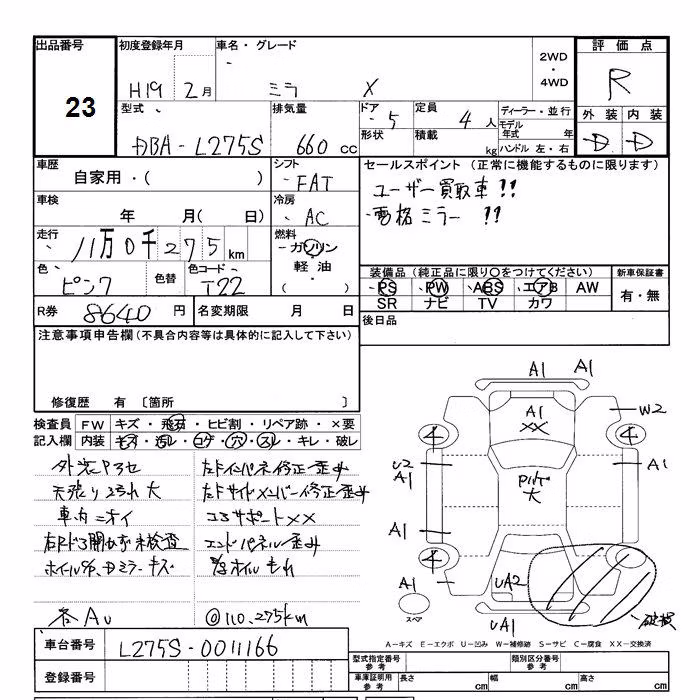 出品番号 初度登録年月 車名・グレード 2WD・4WD 評価点
23 H19 2月 ミラ X R
型式 排気量 ドア 5 定員 4人 ディーラー・並行 外装 内装
DBA-L275S 660cc 形状 積載 kg モデル年式 年 ハンドル 左・右 D D
車歴 シフト セールスポイント（正常に機能するものに限ります）
自家用・( ) FAT ユーザー買取車!!
車検 冷房 電格ミラー !!
年 月( 日) AC
走行 燃料
11万0千275km ガソリン
色 色替 色コード 軽油 装備品（純正品に限り○をつけてください） 新車保証書
ピンク T22 ・( ) PS PW ABS エアB AW 有・無
SR ナビ TV カワ
R券 8640円 名変期限 月 日 後日品
注意事項申告欄（不具合内容等は具体的に記入して下さい）
修復歴 有 〔箇所 〕
検査員 FW キズ・飛石・ヒビ割・リペア跡・×要
記入欄 内装 キズ・汚レ・コゲ・穴・スレ・キレ・破レ
天張り 大
車内ニオイ コアサポートXX
右Rドア開かず未検査 エンドパネル歪み
各AU @110.275km
A1 A1
A1 XX W2
4 4
U2 A1 A1
大
A1
4
A1 UA2
スペア UA1 破損
A－キズ E－エクボ U－凹み W－補修跡 S－サビ C－腐食 XX－交換済
車台番号 L275S-0011166
登録番号
型式指定番号 参考 類別区分番号 参考
車庫証明用 参考 長さ cm 幅 cm 高さ cm